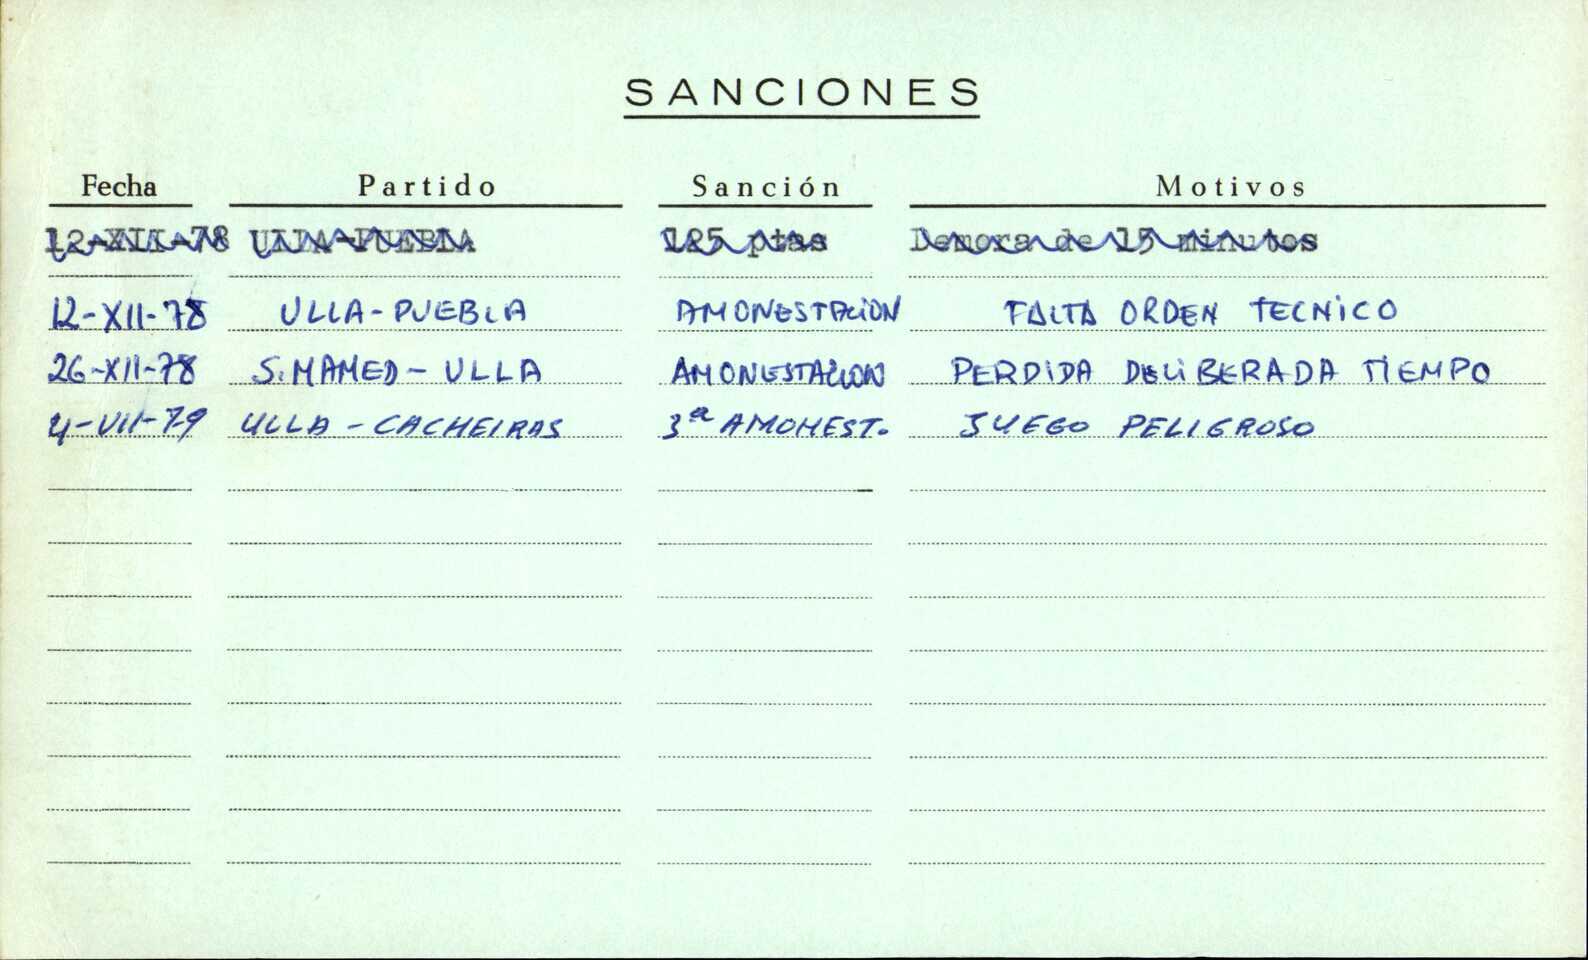 SANCIONES
Fecha Partido Sanción Motivos
12-XII-78 ULLA-PUEBLA 125 ptas Demora de 15 minutos
12-XII-78 ULLA-PUEBLA AMONESTACION FALTA ORDEN TECNICO
26-XII-78 S.MAMED-ULLA AMONESTACION PERDIDA DELIBERADA TIEMPO
4-VII-79 ULLA-CACHEIRAS 3ª AMONEST. JUEGO PELIGROSO